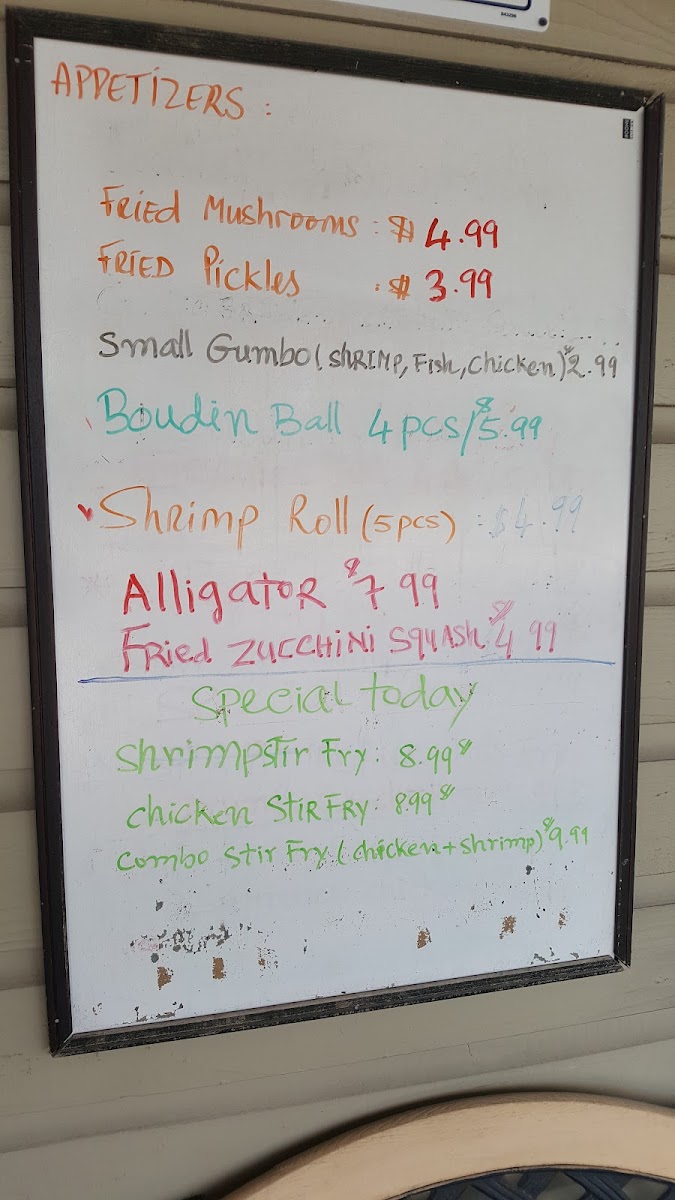 APPETIZERS :
FRiED MushRooms : $ 4.99
FRIED Pickles : $ 3.99
Small Gumbo (ShRIMP, Fish, Chicken) $2.99
Boudin Ball 4 pcs/$5.99
Shrimp Roll (5 pcs) : $4.99
AlligatoR $7 99
FRied ZUCCHiNi SquASh $4 99
Special today
Shrimp Stir Fry: 8.99$
chicken STiR FRY: 8.99$
Combo Stir Fry (chicken + shrimp) $9.99